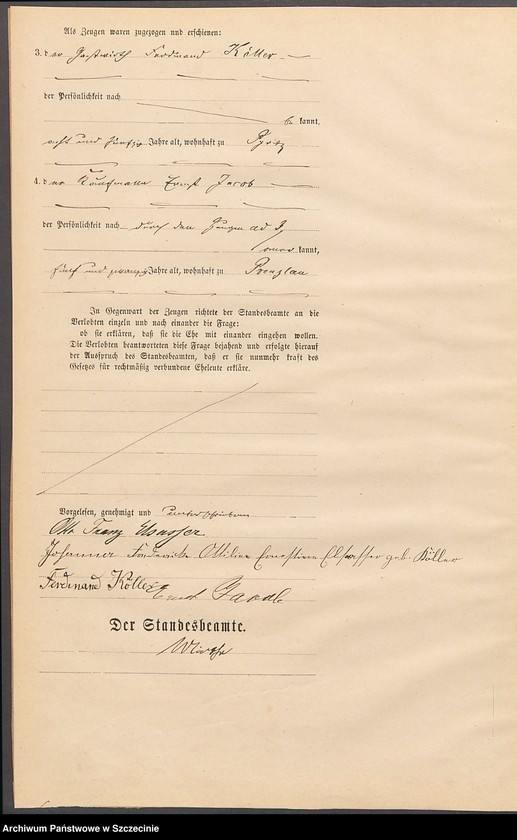 Als Zeugen waren zugezogen und erschienen:
3. der Gastwirth Ferdinand Köller
der Persönlichkeit nach
be kannt,
acht und fünfzig Jahre alt, wohnhaft zu Pyritz
4. der Kaufmann Ernst Jacob
der Persönlichkeit nach durch den Zeugen ad 3
kannt,
fünf und zwanzig Jahre alt, wohnhaft zu Prenzlau
In Gegenwart der Zeugen richtete der Standesbeamte an die
Verlobten einzeln und nach einander die Frage:
ob sie erklären, daß sie die Ehe mit einander eingehen wollen.
Die Verlobten beantworteten diese Frage bejahend und erfolgte hierauf
der Ausspruch des Standesbeamten, daß er sie nunmehr kraft des
Gesetzes für rechtmäßig verbundene Eheleute erkläre.
Vorgelesen, genehmigt und unterschrieben
Otto Franz Elsasser
Johanna Friederike Ottilie Ernestine Elsasser geb. Köller
Ferdinand Köller Ernst Jacob
Der Standesbeamte.
Archiwum Państwowe w Szczecinie